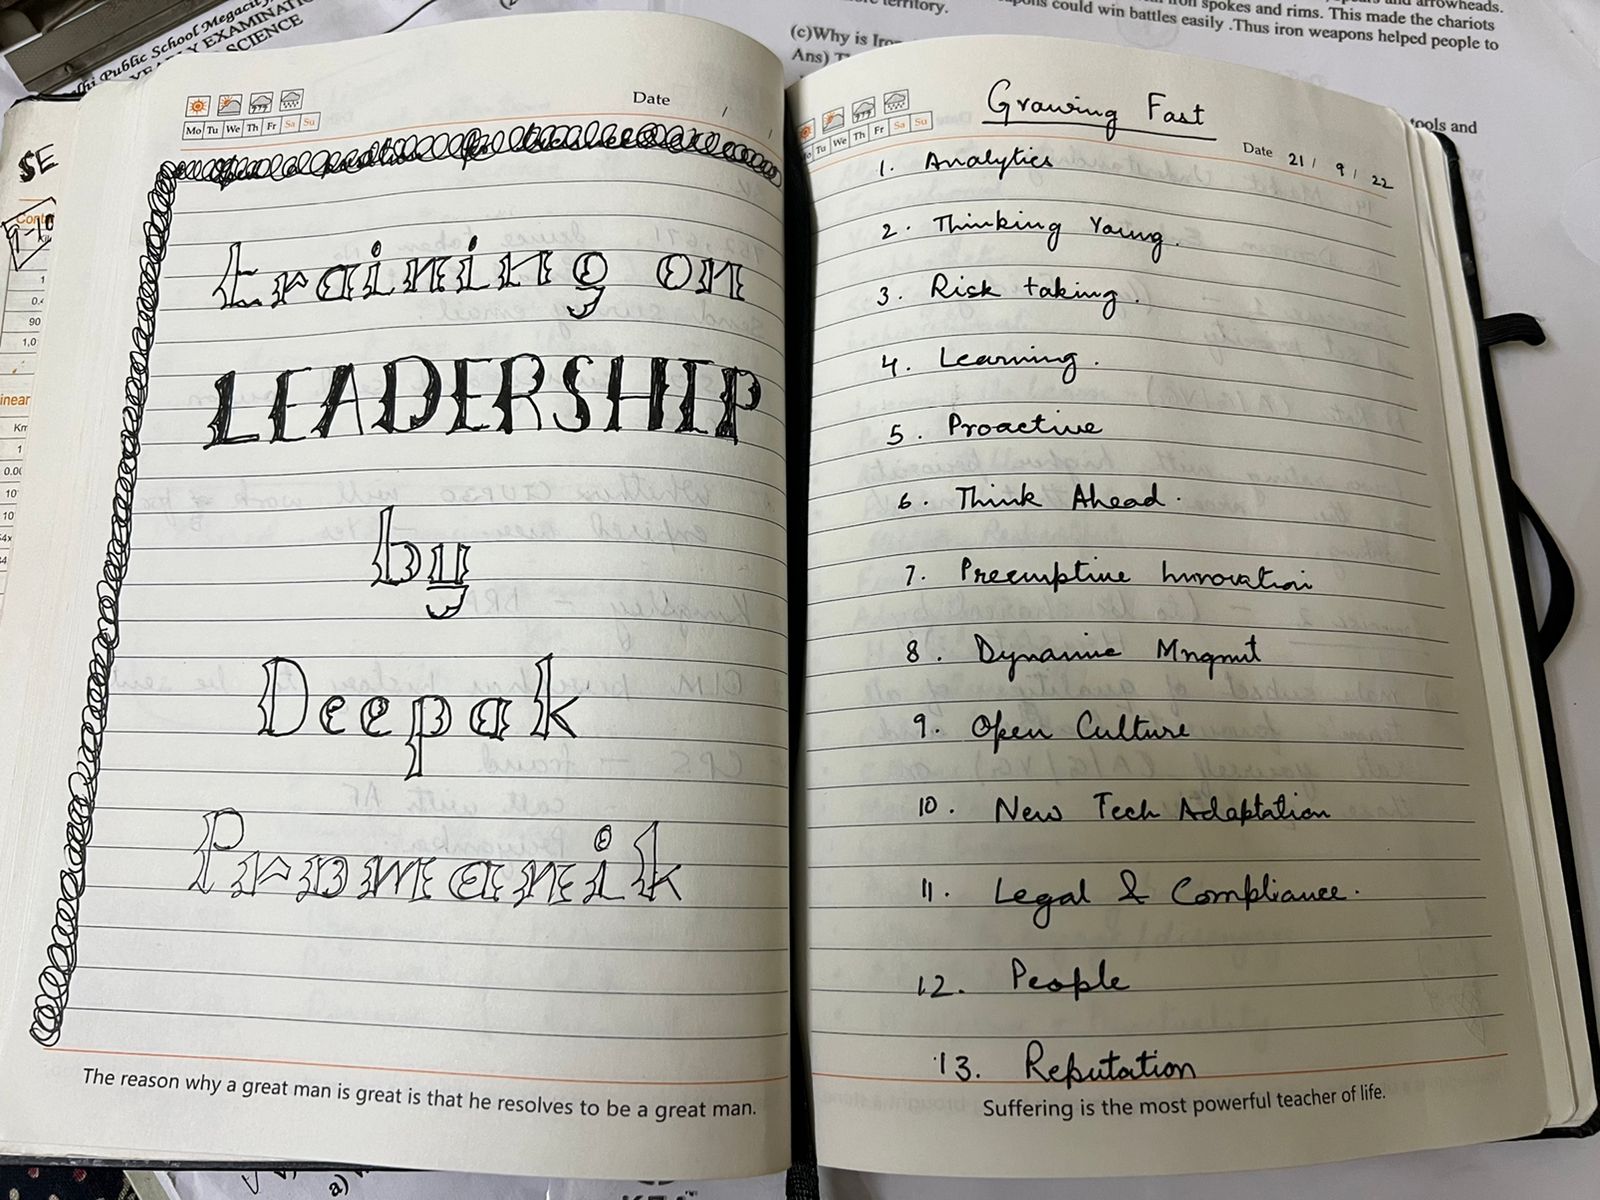 Delhi Public School Megacity
SCIENCE
territory.
could win battles easily .Thus iron weapons helped people to
spokes and rims. This made the chariots
arrowheads.
(c)Why is Iron
Ans)
tools and
SE
9-10
Date / /
Mo Tu We Th Fr Sa Su
training on
LEADERSHIP
by
Deepak
Promanik
The reason why a great man is great is that he resolves to be a great man.
Growing Fast
Tu We Th Fr Sa Su
Date 21 / 9 / 22
1. Analytics
2. Thinking Young.
3. Risk taking.
4. Learning.
5. Proactive
6. Think Ahead.
7. Preemptive Innovation
8. Dynamic Mngmnt
9. Open Culture
10. New Tech Adaptation
11. Legal & Compliance.
12. People
13. Reputation
Suffering is the most powerful teacher of life.
a)